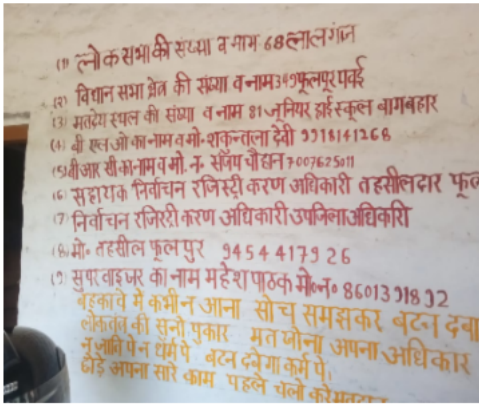 (1) लोक सभा की संख्या व नाम 68 लालगंज
(2) विधान सभा क्षेत्र की संख्या व नाम 349 फूलपुर पवई
(3) मतदेय स्थल की संख्या व नाम 81 जूनियर हाई स्कूल बागबहार
(4) बी एल ओ का नाम व मो॰ शकुन्तला देवी 9918141268
(5) बी आर सी का नाम व मो. न॰ संजय चौहान 7007625011
(6) सहायक निर्वाचन रजिस्ट्री करण अधिकारी तहसीलदार फूल
(7) निर्वाचन रजिस्ट्री करण अधिकारी उपजिलाअधिकारी
(8) मो॰ तहसील फूलपुर 9454417926
(9) सुपरवाइजर का नाम महेश पाठक मो॰न॰ 8601391892
बहकावे में कभी न आना सोच समझकर बटन दबा
लोकतंत्र की सुनो पुकार मत खोना अपना अधिकार
न जाति पे न धर्म पे बटन दबेगा कर्म पे।
छोड़े अपना सारे काम पहले चलो करे मतदान